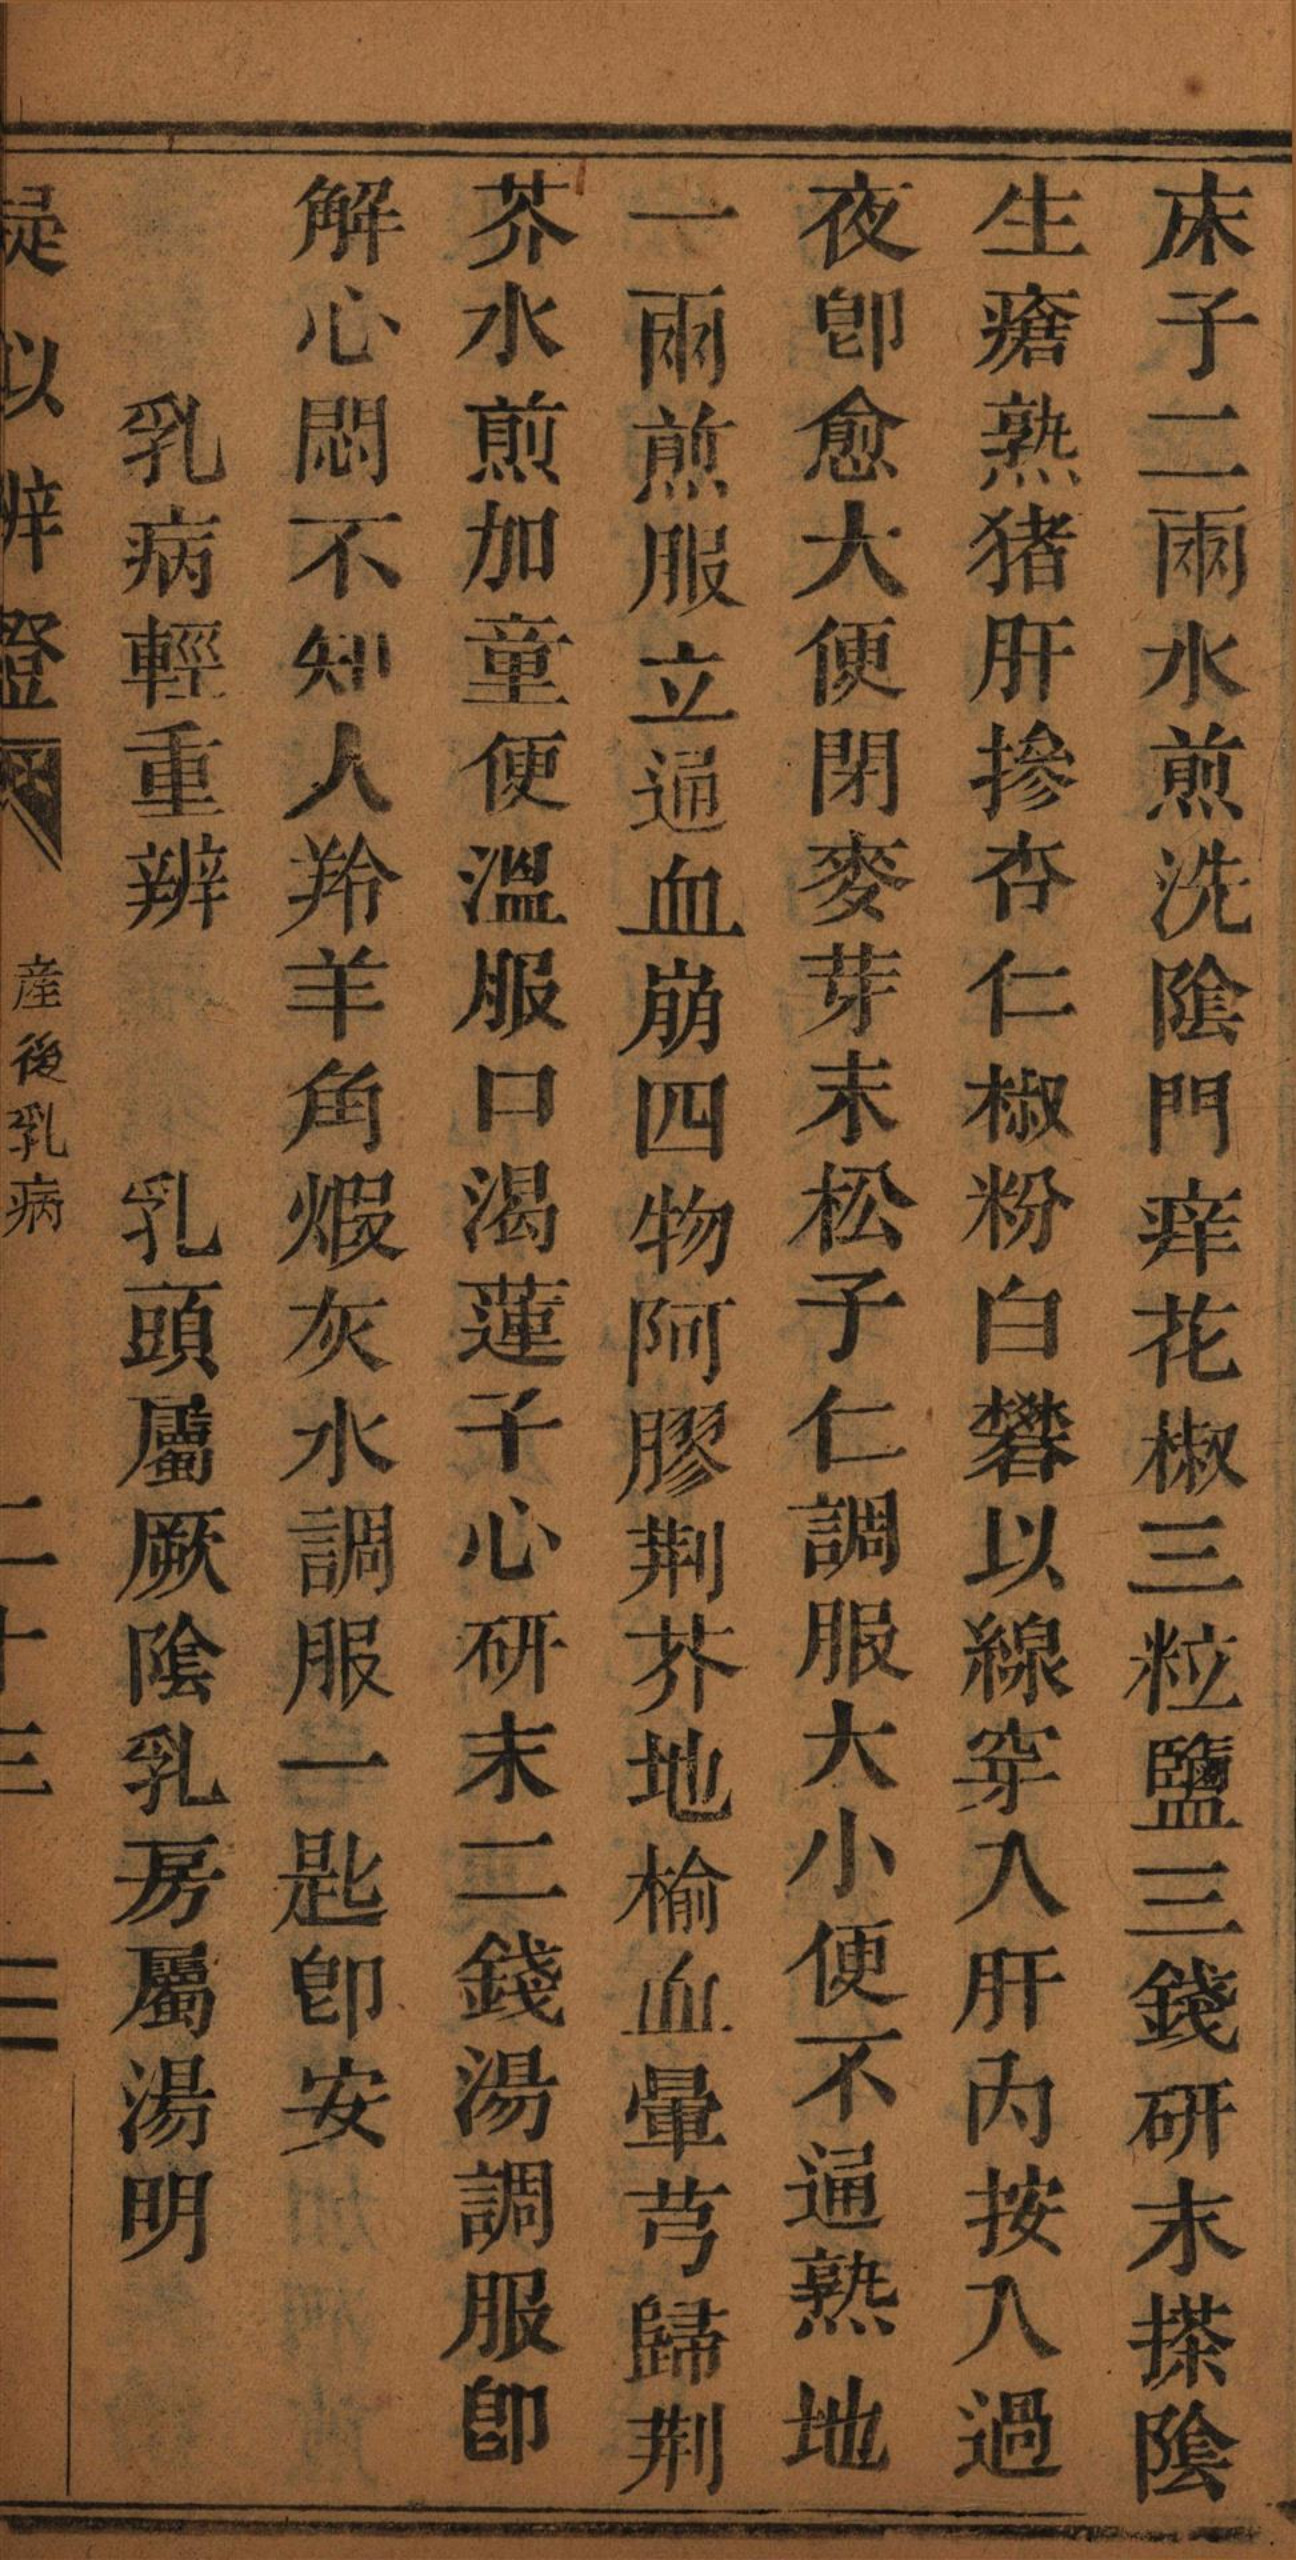 床子二兩水煎洗陰門痒花椒三粒鹽三錢研末搽陰
生瘡熟猪肝摻杏仁椒粉白礬以線穿入肝內按入過
夜卽愈大便閉麥芽末松子仁調服大小便不通熟地
一兩煎服立通血崩四物阿膠荆芥地榆血暈芎歸荆
芥水煎加童便溫服口渴蓮子心研末二錢湯調服卽
解心悶不知人羚羊角煆灰水調服一匙卽安
乳病輕重辨　乳頭屬厥陰乳房屬湯明
疑似辨證　產後乳病　二十三